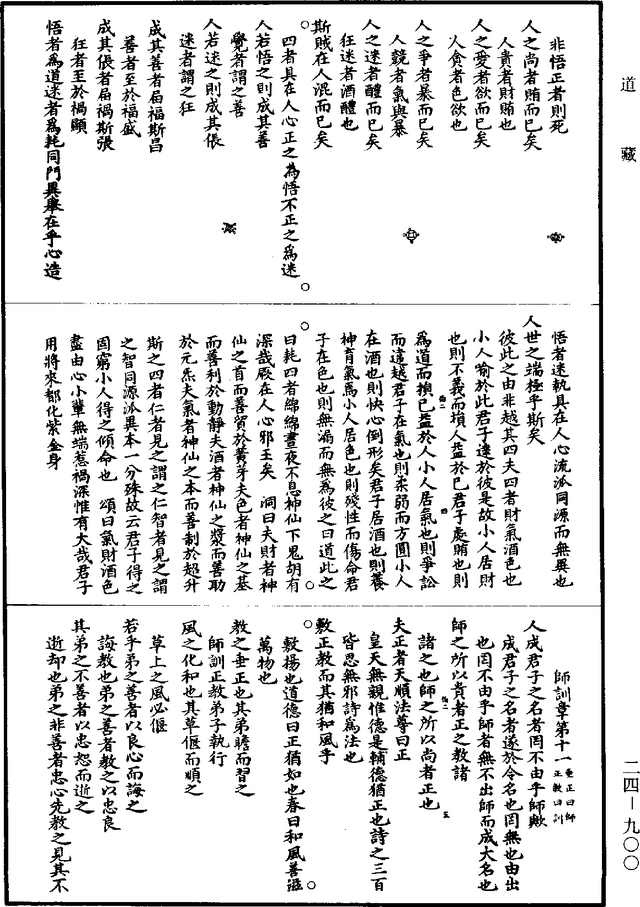 道藏
非悟正者則死
人之尚者賄而已矣
人貴者財賄也
人之愛者欲而已矣
人貪者色欲也
人之爭者暴而已矣
人競者氣與暴
人之迷者醴而已矣
狂迷者酒醴也
斯賊在人混而已矣
四者具在人心正之為悟不正之為迷
人若悟之則成其善
覺者謂之善
人若迷之則成其倀
迷者謂之狂
成其善者屆福斯昌
善者至於福盛
成其倀者屆禍斯張
狂者至於禍顯
悟者為道迷者為耗同門異舉在乎心造
悟者迷執具在人心流派同源而無異也
人世之端極乎斯矣
彼此之由非越其四夫四者財氣酒色也
小人喻於此君子達於彼是故小人居財
也則不義而塤人益於已君子處賄也則
為道而損已益於人小人居氣也則爭訟
而這越君子在氣也則柔弱而方圓小人
在酒也則快心倒形矣君子居酒也則養
神育氣焉小人居色也則殘性而傷命君
子在色也則無漏而無為彼之曰道此之
曰耗四者綿綿晝夜不息神仙下鬼胡有
深哉厥在人心邪王矣　洞曰夫財者神
仙之首而善貿於黃芽夫色者神仙之基
而善利於動靜夫酒者神仙之漿而善助
於元炁夫氣者神仙之本而善制於超升
斯之四者仁者見之謂之仁智者見之謂
之智同源派異本一分殊故云君子得之
固窮小人得之傾命也　頌曰氣財酒色
盡由心小輩無端惹禍深惟有大哉君子
用將來都化紫金身
師訓章第十一垂正曰師正教曰訓
人成君子之名者罔不由乎師歟
成君子之名者遂於令名也罔無也由出
也罔不由乎師者無不出師而成大名也
師之所以貴者正之教諸
諸之也師之所以尚者正也
夫正者天順法尊曰正
皇天無親惟德是輔德猶正也詩之三百
皆思無邪詩為法也
敷正教而其猶和風乎
敷揚也道德曰正猶如也春日和風善滋
萬物也
教之垂正也其弟瞻而習之
師訓正教弟子執行
風之化和也其草偃而順之
草上之風必偃
若乎弟之善者以良心而誨之
誨教也弟之善者教之以忠良
其弟之不善者以忠恕而逝之
逝却也弟之非善者忠心先教之見其不
二四－九〇〇